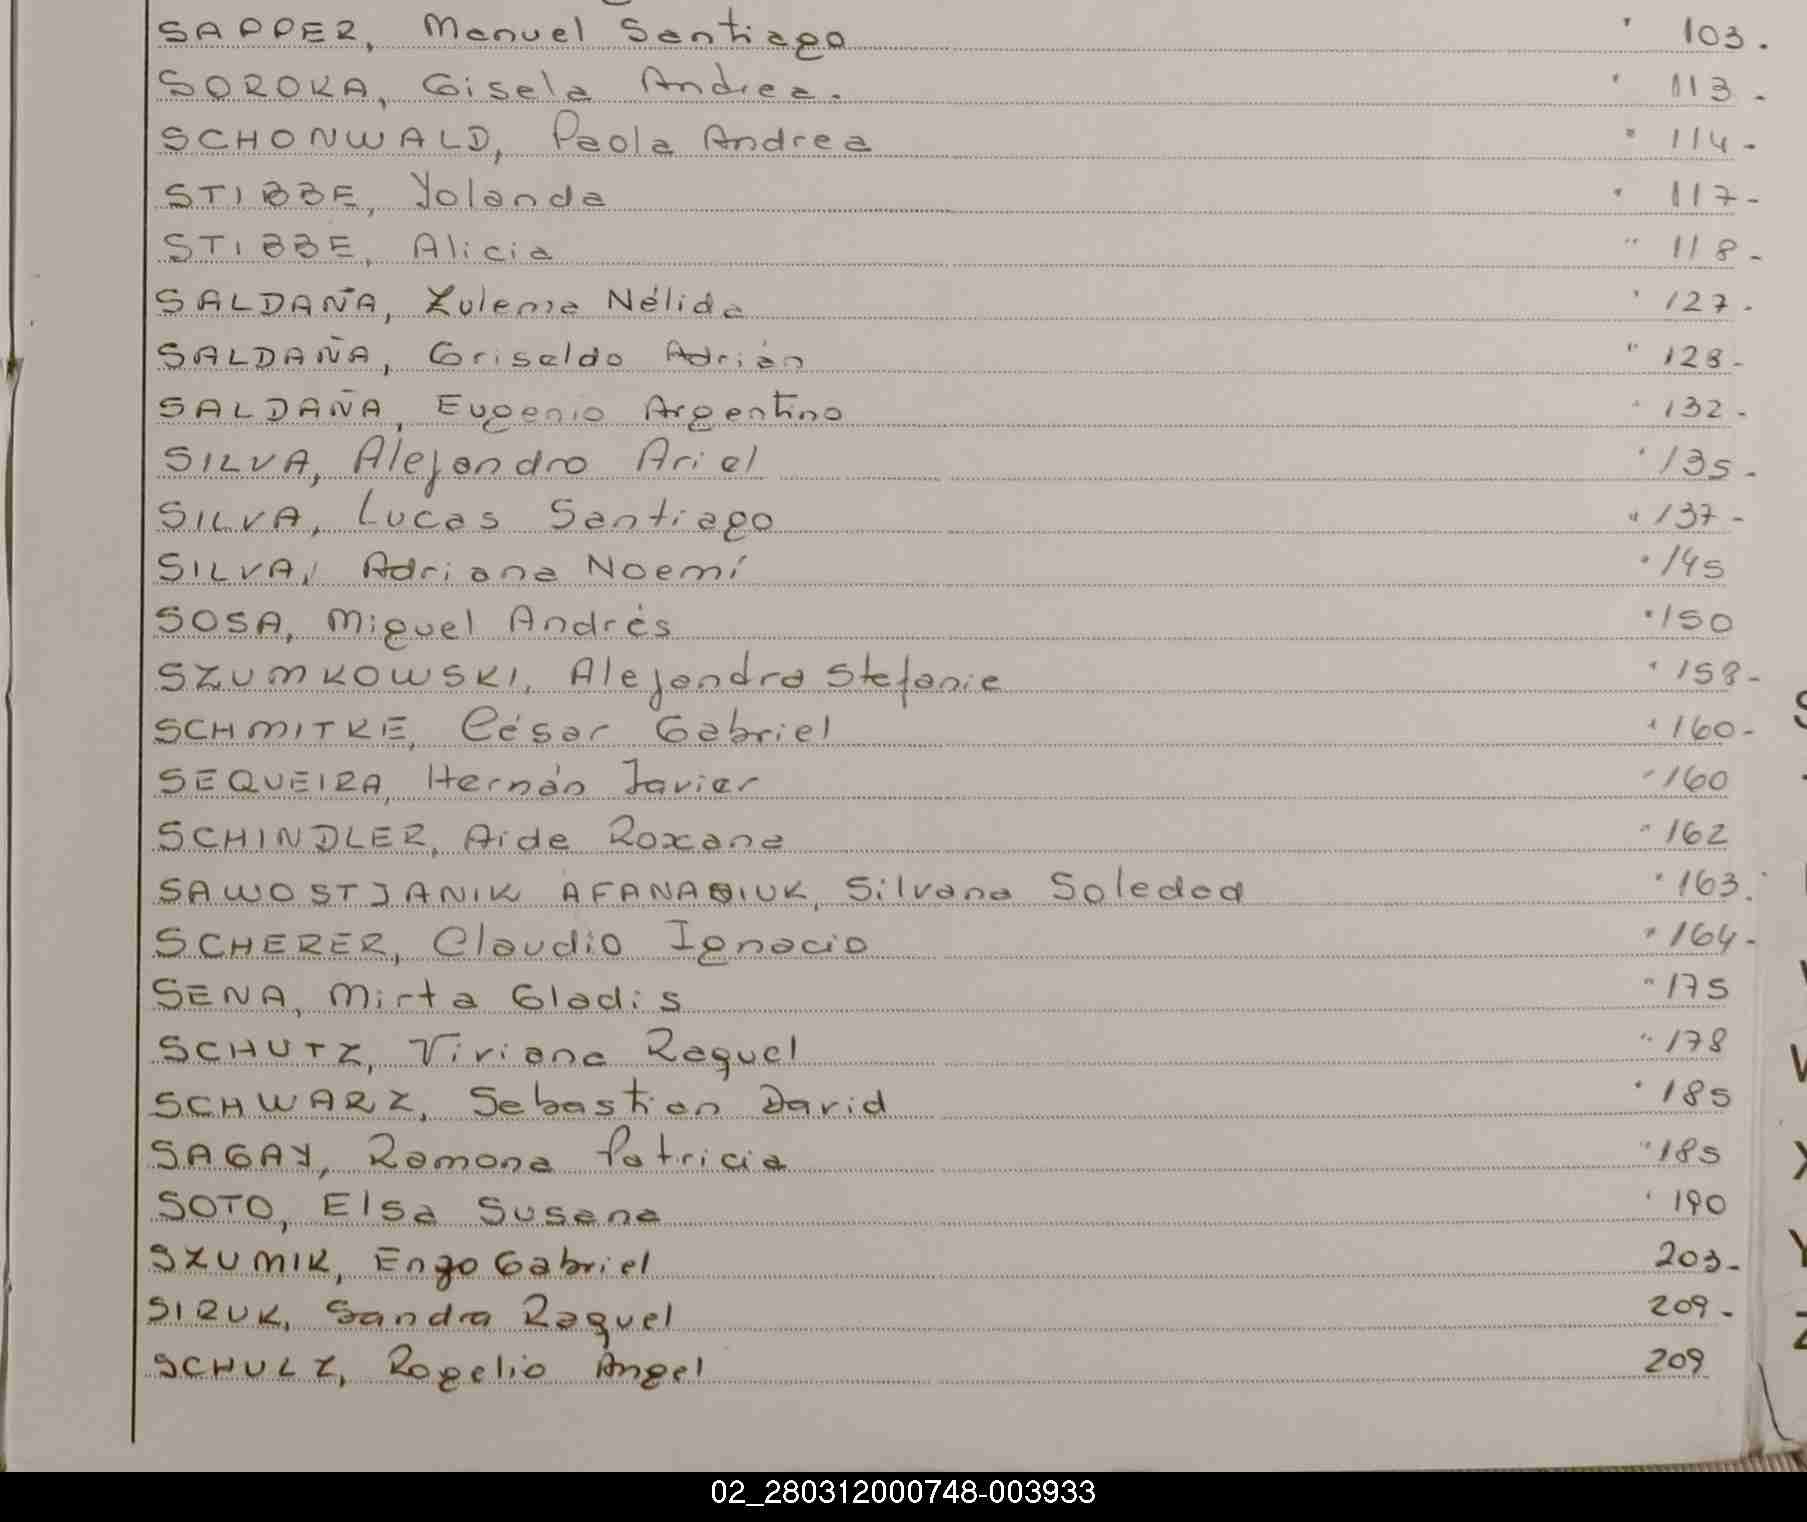 SAPPER, Manuel Santiago " 103.
SOROKA, Gisela Andrea. " 113-
SCHONWALD, Paola Andrea " 114-
STIBBE, Yolanda " 117-
STIBBE, Alicia " 118-
SALDAÑA, Zulema Nélida " 127-
SALDAÑA, Griseldo Adrián " 128-
SALDAÑA, Eugenio Argentino " 132-
SILVA, Alejandro Ariel " 135-
SILVA, Lucas Santiago " 137-
SILVA, Adriana Noemí " 145
SOSA, Miguel Andrés " 150
SZUMKOWSKI, Alejandra Stefanie " 158-
SCHMITKE, César Gabriel " 160-
SEQUEIRA, Hernán Javier " 160
SCHINDLER, Aide Roxana " 162
SAWOSTJANIK AFANASIUK, Silvana Soledad " 163.
SCHERER, Claudio Ignacio " 164-
SENA, Mirta Gladis " 175
SCHUTZ, Viviana Raquel " 178
SCHWARZ, Sebastian David " 185
SAGAY, Ramona Patricia " 185
SOTO, Elsa Susana " 190
SZUMIK, Enzo Gabriel 203-
SIRUK, Sandra Raquel 209-
SCHULZ, Rogelio Angel 209
02_280312000748-003933